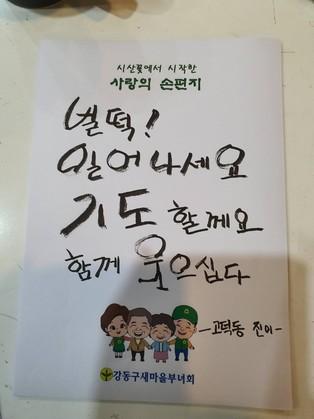 시산꽃에서 시작한
사랑의 손편지
벌떡!
일어나세요
기도 할께요
함께 웃으십다
-고덕동 진이-
강동구새마을부녀회